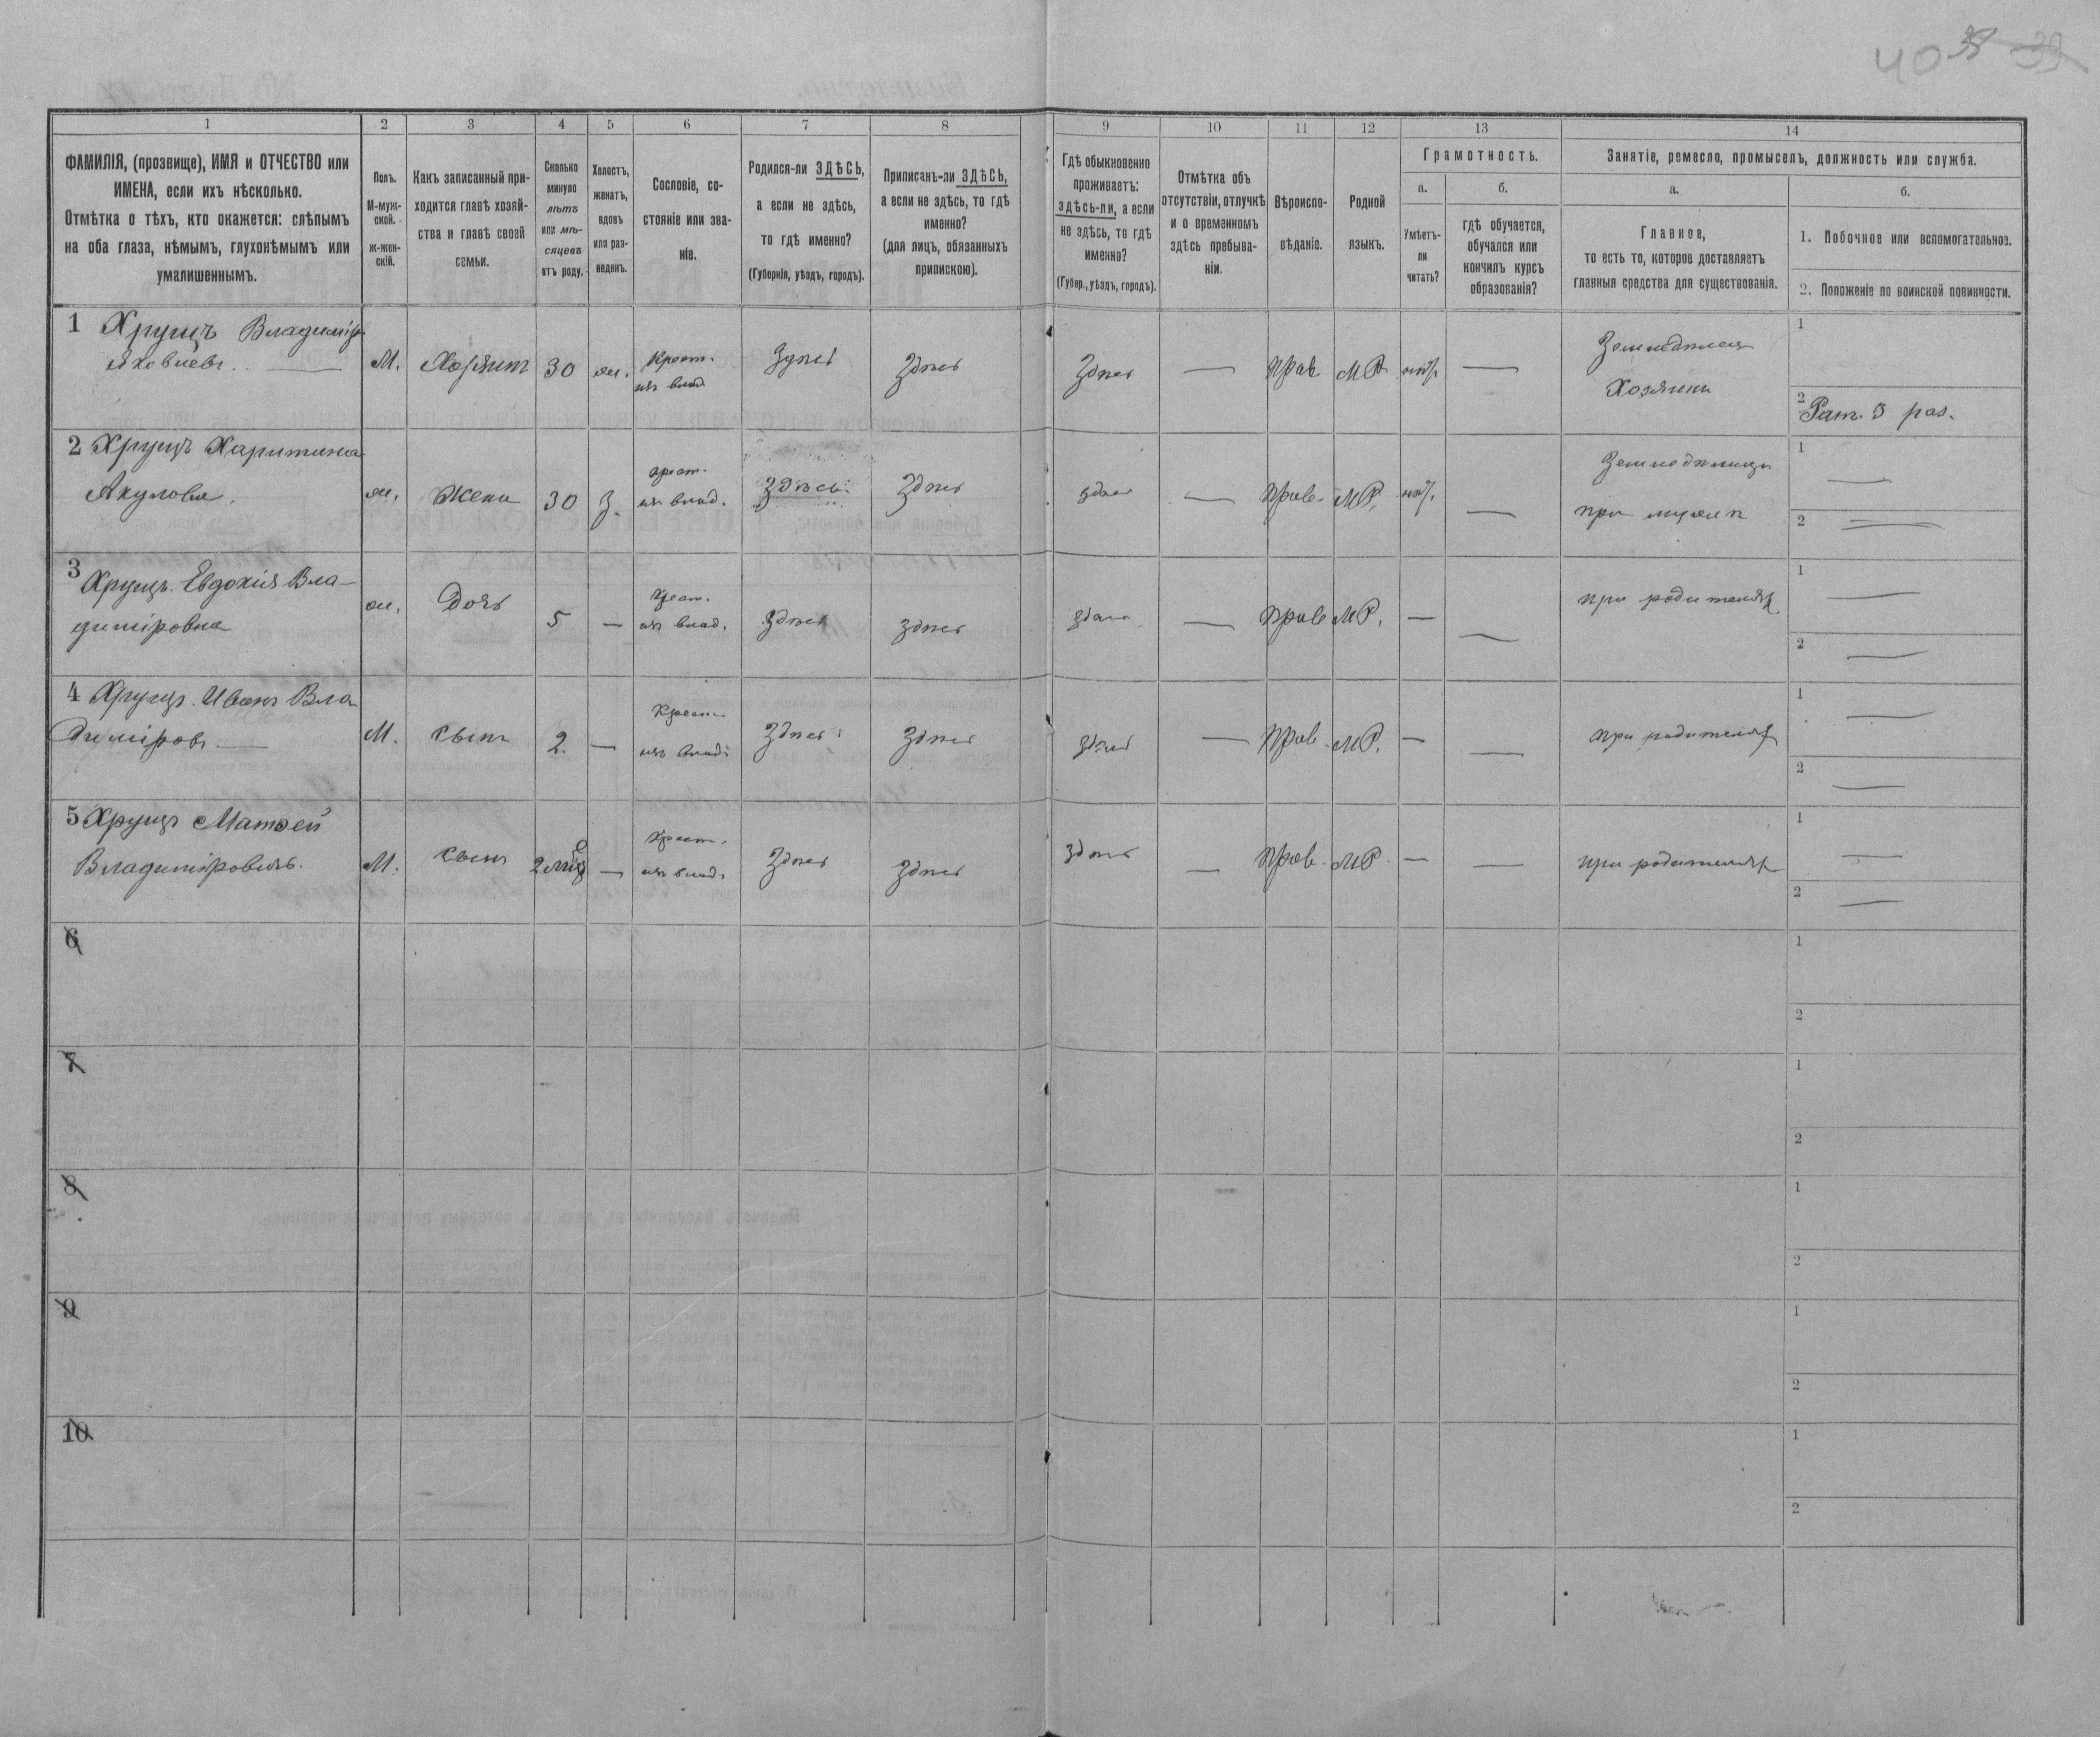 40 38 39
1 2 3 4 5 6 7 8 9 10 11 12 13 14
ФАМИЛІЯ, (прозвище), ИМЯ и ОТЧЕСТВО или
ИМЕНА, если ихъ нѣсколько.
Отмѣтка о тѣхъ, кто окажется: слѣпымъ
на оба глаза, нѣмымъ, глухонѣмымъ или
умалишеннымъ.
Полъ.
М-муж-
ской.
ж-жен-
скій.
Какъ записанный при-
ходится главѣ хозяй-
ства и главѣ своей
семьи.
Сколько
минуло
лѣтъ
или мѣ-
сяцевъ
отъ роду.
Холостъ,
женатъ,
вдовъ
или раз-
веденъ.
Сословіе, со-
стояніе или зва-
ніе.
Родился-ли ЗДѢСЬ,
а если не здѣсь,
то гдѣ именно?
(Губернія, уѣздъ, городъ).
Приписанъ-ли ЗДѢСЬ,
а если не здѣсь, то гдѣ
именно?
(для лицъ, обязанныхъ
припискою).
Гдѣ обыкновенно
проживаетъ:
здѣсь-ли, а если
не здѣсь, то гдѣ
именно?
(Губер., уѣздъ, городъ).
Отмѣтка объ
отсутствіи, отлучкѣ
и о временномъ
здѣсь пребыва-
ніи.
Вѣроиспо-
вѣданіе.
Родной
языкъ.
Грамотность.
а.
Умѣетъ-
ли
читать?
б.
гдѣ обучается,
обучался или
кончилъ курсъ
образованія?
Занятіе, ремесло, промыселъ, должность или служба.
а.
Главное,
то есть то, которое доставляетъ
главныя средства для существованія.
б.
1. Побочное или вспомогательное.
2. Положеніе по воинской повинности.
1 Хрущъ Владиміръ
Яковлевъ. —
М. Хозяинъ 30 ж. Крест.
изъ влад. Здѣсь Здѣсь Здѣсь — Прав. МР. нѣтъ —
Земледѣлецъ
Хозяинъ
1
2 Рат. 3 раз.
2 Хрущъ Харитина
Акуловна.
ж. Жена 30 З. Крест.
изъ влад. Здѣсь. Здѣсь здѣсь — Прав. МР. нѣтъ. —
при мужѣ
1 —
2 —
3 Хрущъ. Евдокія Вла-
диміровна
ж. Дочь 5 — Крест.
изъ влад. Здѣсь здѣсь здѣсь — Прав. МР. — —
при родителяхъ
1 —
2 —
4 Хрущъ. Иванъ Вла
диміровъ. —
М. Сынъ 2. — Крест.
изъ влад. Здѣсь Здѣсь здѣсь — Прав. МР. — —
при родителяхъ
1 —
2 —
5 Хрущъ Матвей
Владиміровичъ.
М. Сынъ 2 мѣс — Крест.
изъ влад. Здѣсь Здѣсь здѣсь — Прав. МР. — —
при родителяхъ
1 —
2 —
6
1
2
7
1
2
8
1
2
9
1
2
10
1
2